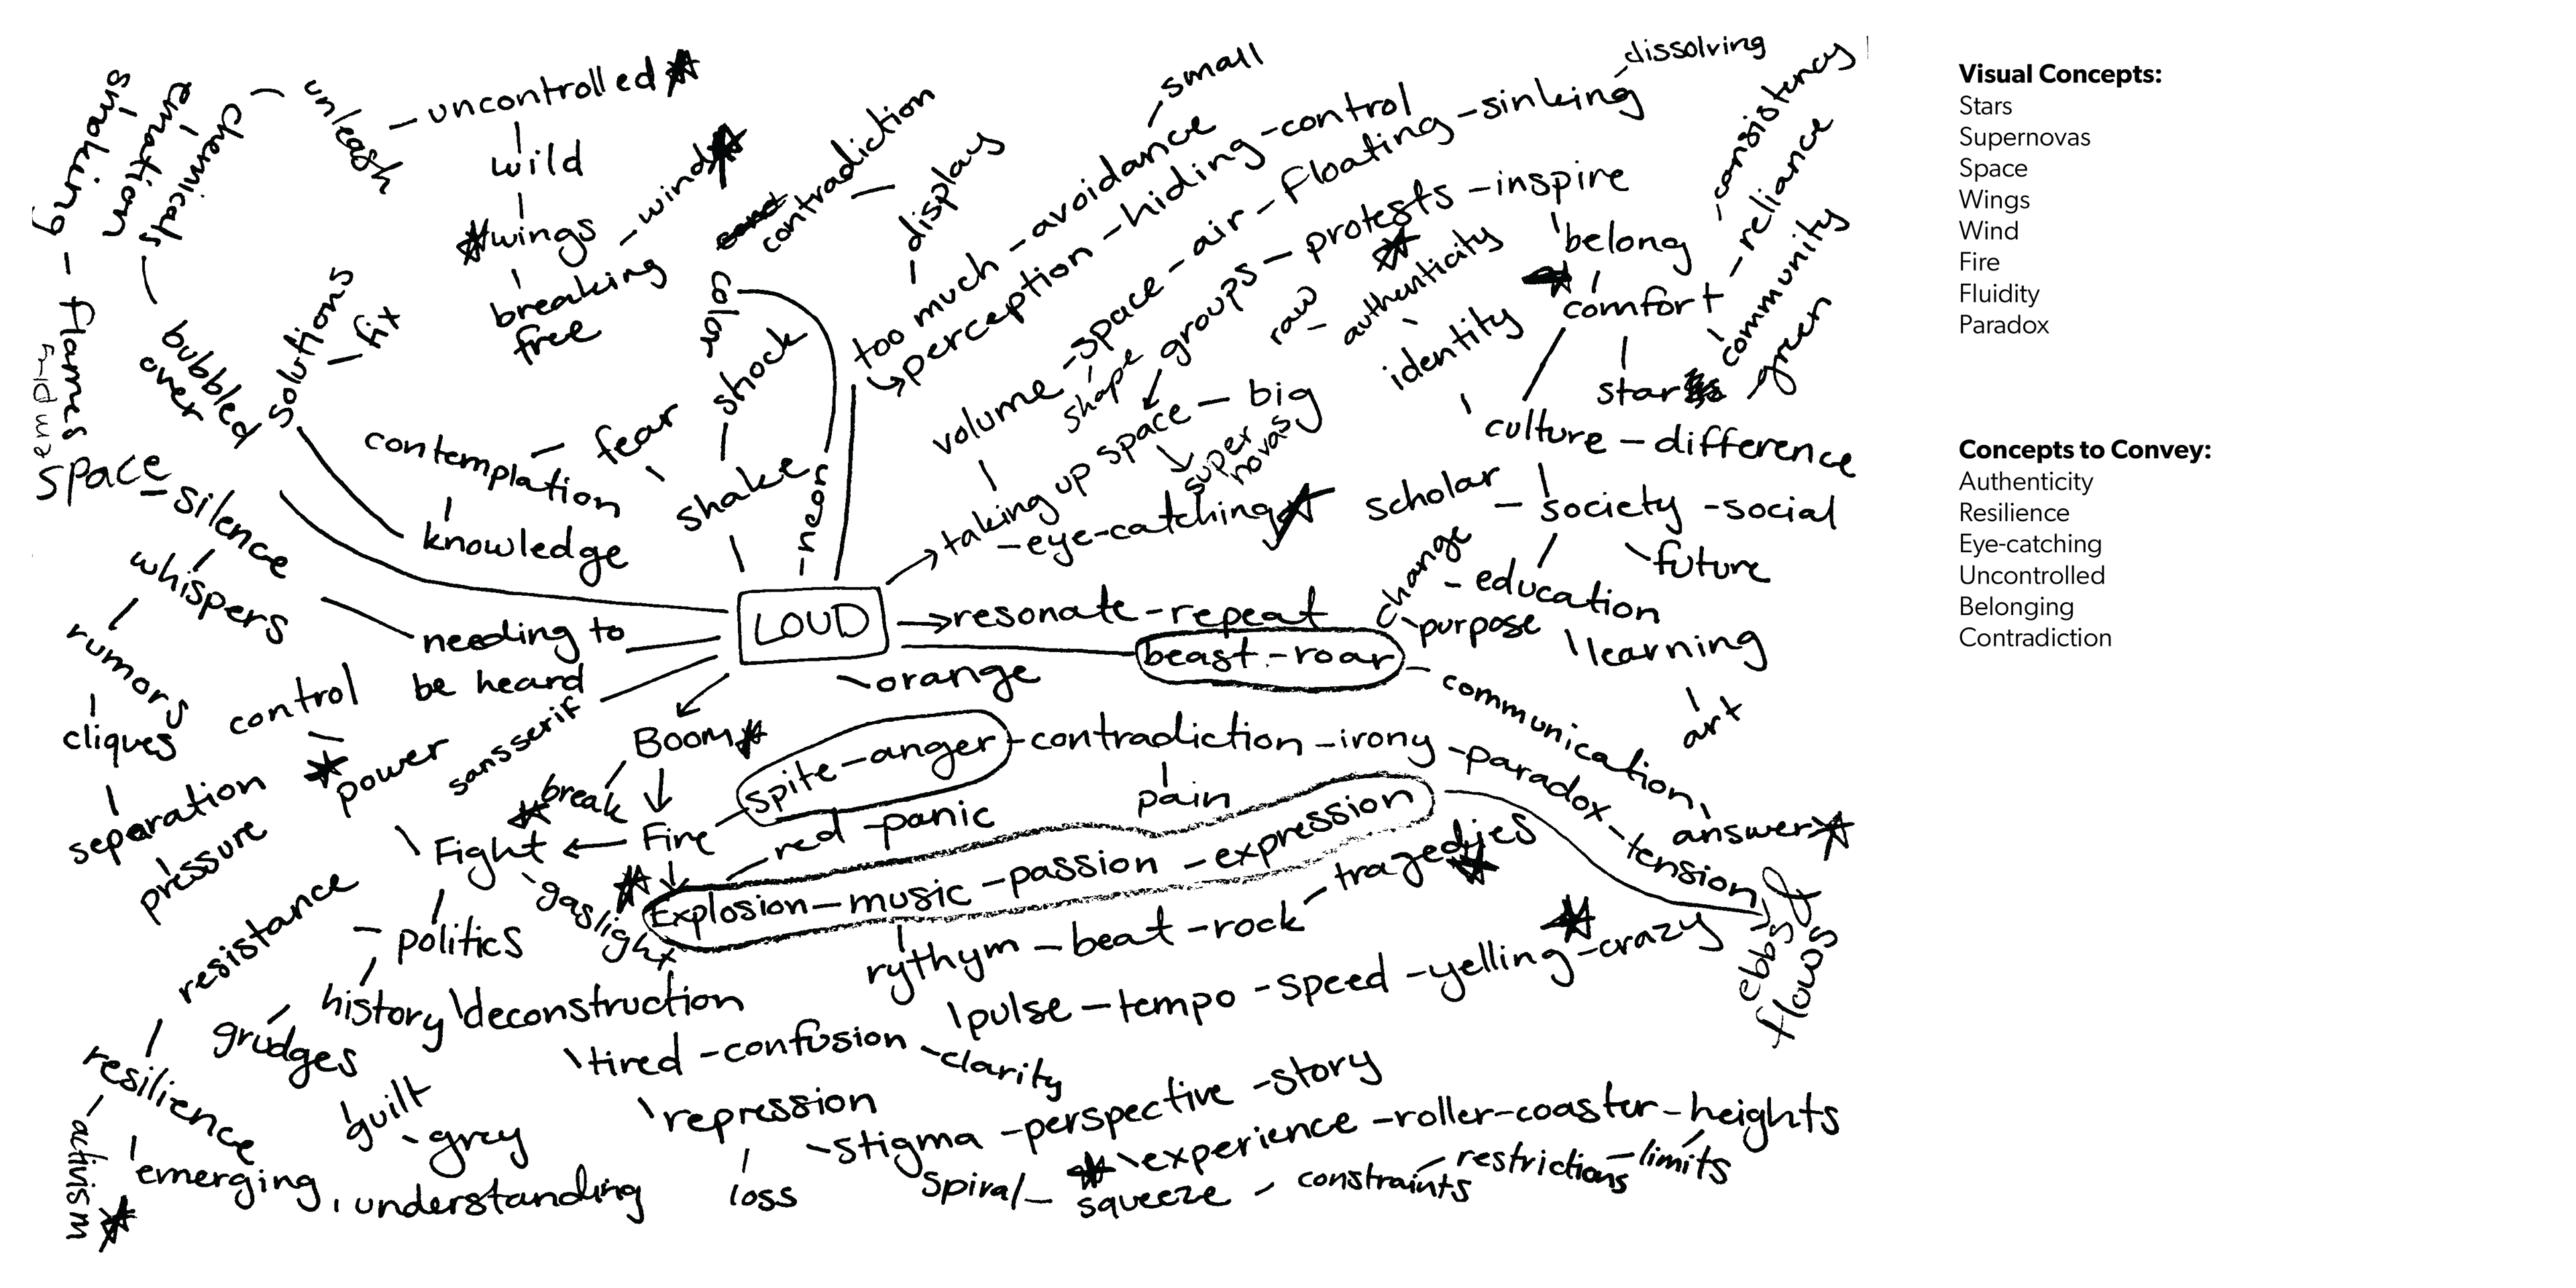 smoking - flames
emotion
chemicals
unleash
- uncontrolled
wild
wings
breaking
free
- wind
bubbled
over
solutions
- fix
contemplation
- fear
knowledge
shake
shock
- neon
color
contradiction
- display
small
too much - avoidance
perception - hiding - control
dissolving
volume - space - air - floating - sinking
shape
groups - protests - inspire
taking up space - big
super
novas
- eye-catching
raw
authenticity
identity
belong
comfort - reliance
- consistency
community
green
star
culture - difference
scholar - society - social
future
change - education
purpose
learning
art
space - silence
whispers
rumors
cliques
separation
pressure
needing to
be heard
control
power
sans serif
LOUD
resonate - repeat
beast - roar
- communication
answer
orange
Boom
break
Fire
Fight
spite - anger - contradiction - irony - paradox - tension
pain
red - panic
Explosion - music - passion - expression
ebbs &
flows
gaslight
rythym - beat - rock - tragedies
pulse - tempo - speed - yelling - crazy
politics
resistance
history
deconstruction
grudges
guilt
- grey
resilience
- activism
emerging
understanding
tired - confusion - clarity
repression
loss
- stigma - perspective - story
experience - roller-coaster - heights
spiral - squeeze - constraints - restrictions - limits
Visual Concepts:
Stars
Supernovas
Space
Wings
Wind
Fire
Fluidity
Paradox
Concepts to Convey:
Authenticity
Resilience
Eye-catching
Uncontrolled
Belonging
Contradiction